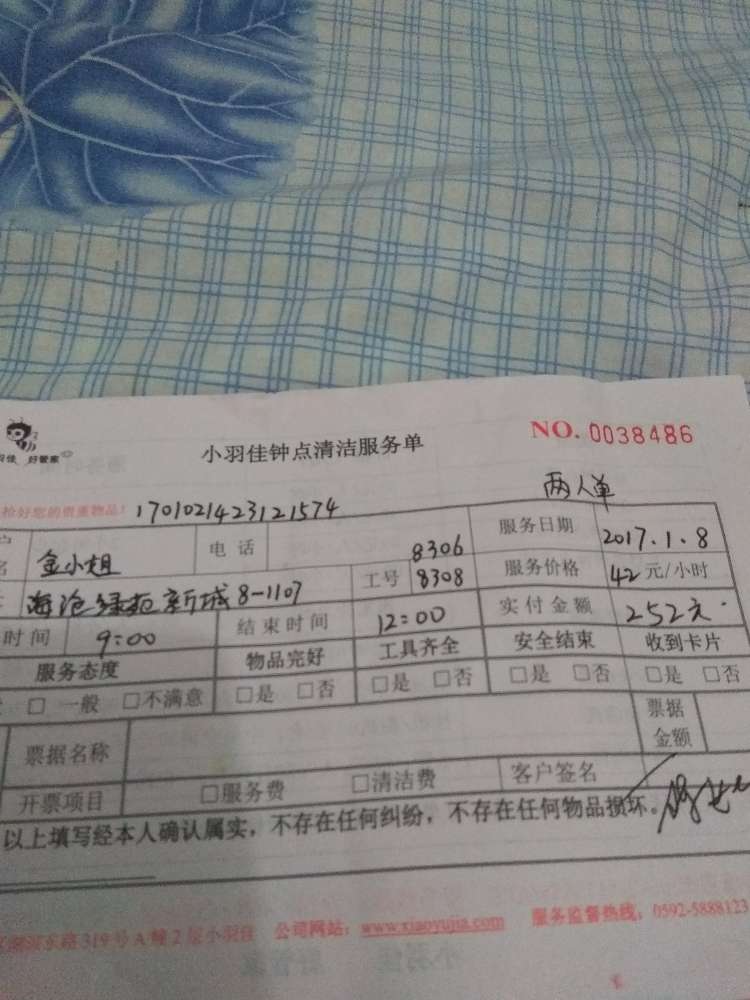 小羽佳钟点清洁服务单 NO. 0038486
好管家
检好您的贵重物品! 1701021423121574 两人单
名 金小姐 电话 服务日期 2017.1.8
海沧绿苑新城8-1107 工号 8306 8308 服务价格 42元/小时
时间 9:00 结束时间 12:00 实付金额 252元
服务态度 物品完好 工具齐全 安全结束 收到卡片
□ 一般 □不满意 □是 □否 □是 □否 □是 □否 □是 □否
票据名称 票据金额
开票项目 □服务费 □清洁费 客户签名
以上填写经本人确认属实，不存在任何纠纷，不存在任何物品损坏。
东路319号A幢2层小羽佳 公司网站：www.xiaoyujia.com 服务监督热线：0592-5888123